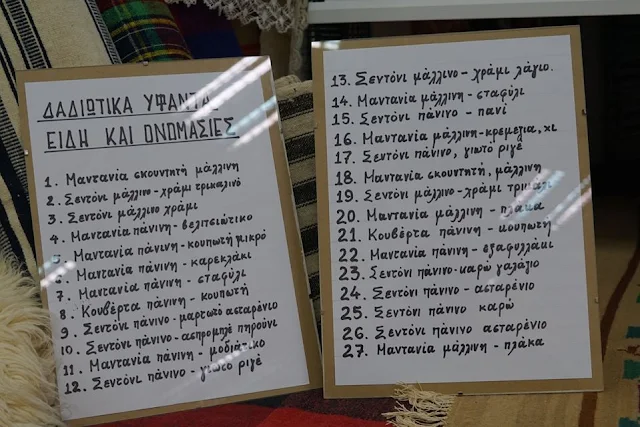 ΔΑΔΙΩΤΙΚΑ ΥΦΑΝΤΑ
ΕΙΔΗ ΚΑΙ ΟΝΟΜΑΣΙΕΣ
1. Μαντανία σκουντητή μάλλινη
2. Σεντόνι μάλλινο-χράμι τρικαλινό
3. Σεντόνι μάλλινο χράμι
4. Μαντανία πάνινη-βελιτσιώτικο
5. Μαντανία πάνινη-κουπωτή μικρό
6. Μαντανία πάνινη - καρεκλάκι
7. Μαντανία πάνινη - σταφύλι
8. Κουβέρτα πάνινη - κουπωτή
9. Σεντόνι πάνινο-μαρτωτό ασταρένιο
10. Σεντόνι πάνινο-ασπρομπλέ πηρούνι
11. Μαντανία πάνινη - μοδιάτικο
12. Σεντόνι πάνινο - γιωτό ριγέ
13. Σεντόνι μάλλινο - χράμι λάγιο.
14. Μαντανία μάλλινη - σταφύλι
15. Σεντόνι πάνινο - πανί
16. Μαντανία μάλλινη-κρεμεζιά, κι
17. Σεντόνι πάνινο, γιωτό ριγέ
18. Μαντανία σκουντητή, μάλλινη
19. Σεντόνι μάλλινο-χράμι
20. Μαντανία μάλλινη - πλάκα
21. Κουβέρτα πάνινη - κουπωτή
22. Μαντανία πάνινη - εξαφυλλάκι
23. Σεντόνι πάνινο-καρώ γαλάζιο
24. Σεντόνι πάνινο - ασταρένιο
25. Σεντόνι πάνινο καρώ
26. Σεντόνι πάνινο ασταρένιο
27. Μαντανία μάλλινη - πλάκα